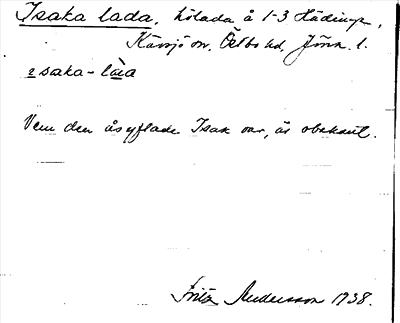 Isaka lada, hölada å 1-3 Hädinge,
Kävsjö sn. Östbo hd, Jönk. l.
ɪsaka-lɑ̀a
Vem den åsyftade Isak var, är obekant.
Fritz Andersson 1938.